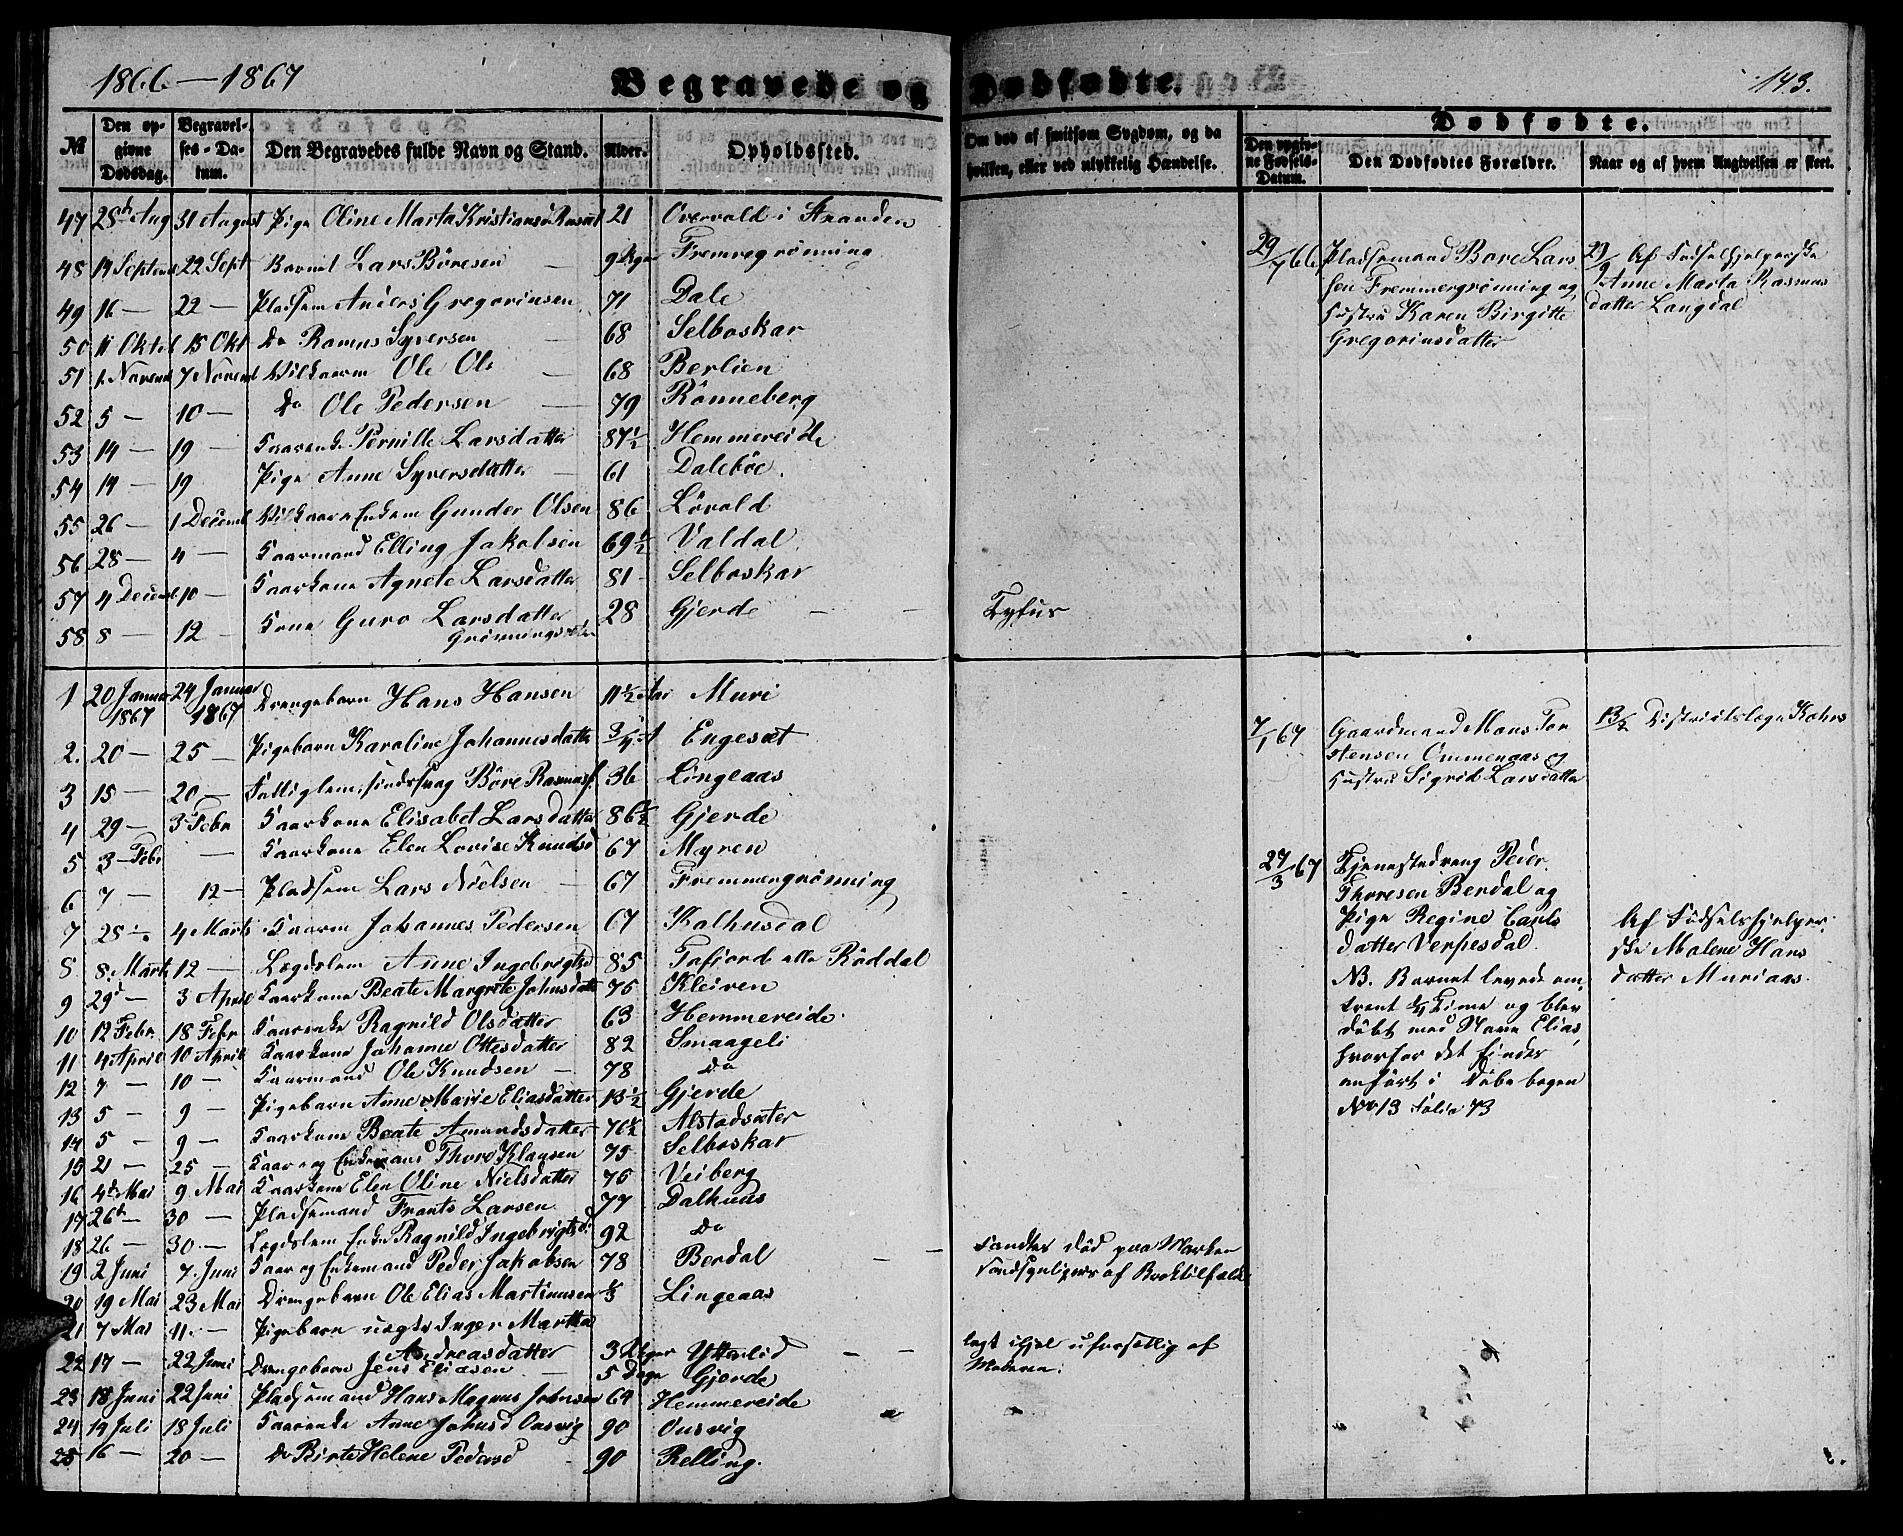 1866 — 1867
Begravede og Dødfødte.
143.
№ Den opgivne Dødsdag. Begravelses-Datum. Den Begravedes fulde Navn og Stand. Alder. Opholdssted.
Om død af smitsom Sygdom, og da hvilken, eller ved ulykkelig Hændelse.
Dødfødte.
Den opgivne Fødsels-Datum. Den Dødfødtes Forældre. Naar og af hvem Angivelsen er skeet.
47 28de Aug 31 August Pige Oline Marta 21 Overvold i Stranden
48 14 Septemb 22 Sept Lars Böresen 9 Uger Fremregrønning
49 16 — 22 — Pladsem Anders Gregoriusen 71 Dale
50 11 Oktob 15 Okt Do Rasmus Syversen — 68 Selboskar
51 1 Novemb 7 Novemb Vilkaarm Ole Ols 68 Berlien
52 5 — 10 — Do Ole Pedersen — 79 Rönneberg
53 14 — 19 — Kaarenke Pernille Larsdatter 87½ Hemmereide
54 14 — 19 Pige Anne Syversdatter — 61 Daleböe
55 26 — 1 Decemb Vilkaars Enkem Gunder Olsen 86 Lövold
56 28 — 4 — Kaarmand Elling Jakobsen 69½ Valdal
57 4 Decemb 10 — Kaarkone Agnete Larsdatter 81 Selboskar
58 8 — 12 — Kone Guro Larsdatter 28 Gjerde — — Tyfus
Grønningsæter
1 20 Januar 24 Januar Drengebarn Hans Hansen 11½ Aar Muri
1867 1867
2. 20 — 25 — Pigebarn Karoline Johannesdatter 3/4 A Engeset
3 15 — 20 — Fattiglem, sindssvag Böre Rasmuss. 36 Lingeaas
4 29 — 3 Febr Kaarkone Elisabet Larsdatter 86½ Gjerde
5 3 Febr — Kaarkone Elen Lovise Knudsd 67 Myren
6 7 — 12 — Pladsem Lars Nielsen — 67 Fremmergrønning
7 28 — 4 Marts Kaarm Johannes Pedersen 67 Kalhusdal
8 8. Marts 12 — Lægdslem Anne Ingebrigtsd 85 Tafjord elle Röddal
9 29d — 3 April Kaarkone Beate Margrete Johnsdatter 75 Kleiven
10 12 Febr. 18 Febr Kaarenke Ragnild Olsdatter 63 Hemmereide
11 4 April 10 April Kaarkone Johanne Ottesdatter 82 Smaageli
12 7 — 10 — Kaarmand Ole Knudsen — 78 Do
13 5 — 9 — Pigebarn Anne Marie Eliasdatter 13½ Gjerde
14 5 — 9 — Kaarkone Beate Amundsdatter 76½ Alstadsæter
15 21 — 25 — Kaar og Enkemand Thore Klausen 75 Selboskar
16 4de Mai 9 Mai Kaarkone Elen Oline Nielsdatter 75 Veiberg
17 26de — 30 — Pladsemand Frants Larsen 77 Dalhuus
18 26 — 30 — Lægdslem Enke Ragnild Ingebrigtsd. 92 Do
19 2 Juni 7. Juni Kaar og Enkemand Peder Jakobsen 78 Berdal — — Fandtes död paa Marken
Sandsynligvis af
20 19 Mai 23 Mai Drengebarn Ole Elias Martinussen Lingeaas
21 7 Mai 11. — Pigebarn uægte Inger Martha
Andreasdatter 3 Uger Ytterlid — — lagt ihjel uforsetlig af
Moderen.
22 17 — 22 Juni Drengebarn Jens Eliasen — 5 Dage Gjerde
23 18 Juni 22 Juni Pladsemand Hans Magnus Johnsen 69 Hemmereide
24 14 Juli 18 Juli Kaarenke Anne Johnsd Onsvig 90 Onsvig
25 16 — 20 — Do Birte Helene Pedersd 90 Relling.
29/7 66 Pladsemand Bore Lars
sen Fremmergrønning og
Hustru Karen Birgitte
Gregoriusdatter
29/9 Af Födselhjelperske
Anne Marta Rasmus
datter Langdal
7/1 67 Gaardmand Mons Tor
stensen Ommenaas og
Hustru Sigrid Larsdatter
13/2 Districtslæge Kahrs
27/3 67 Tjenestedreng Peder
Thoresen Berdal og
Pige Regine Carls
datter Verpesdal.
NB. Barnet levede om
trent ¼ Time og blev
döbt med Navn Elias,
hvorfor det findes
anfört i Döbe bogen
No 13 Folio 73
Af Födselshjelper
ske Malene Hans
datter Muriaas.